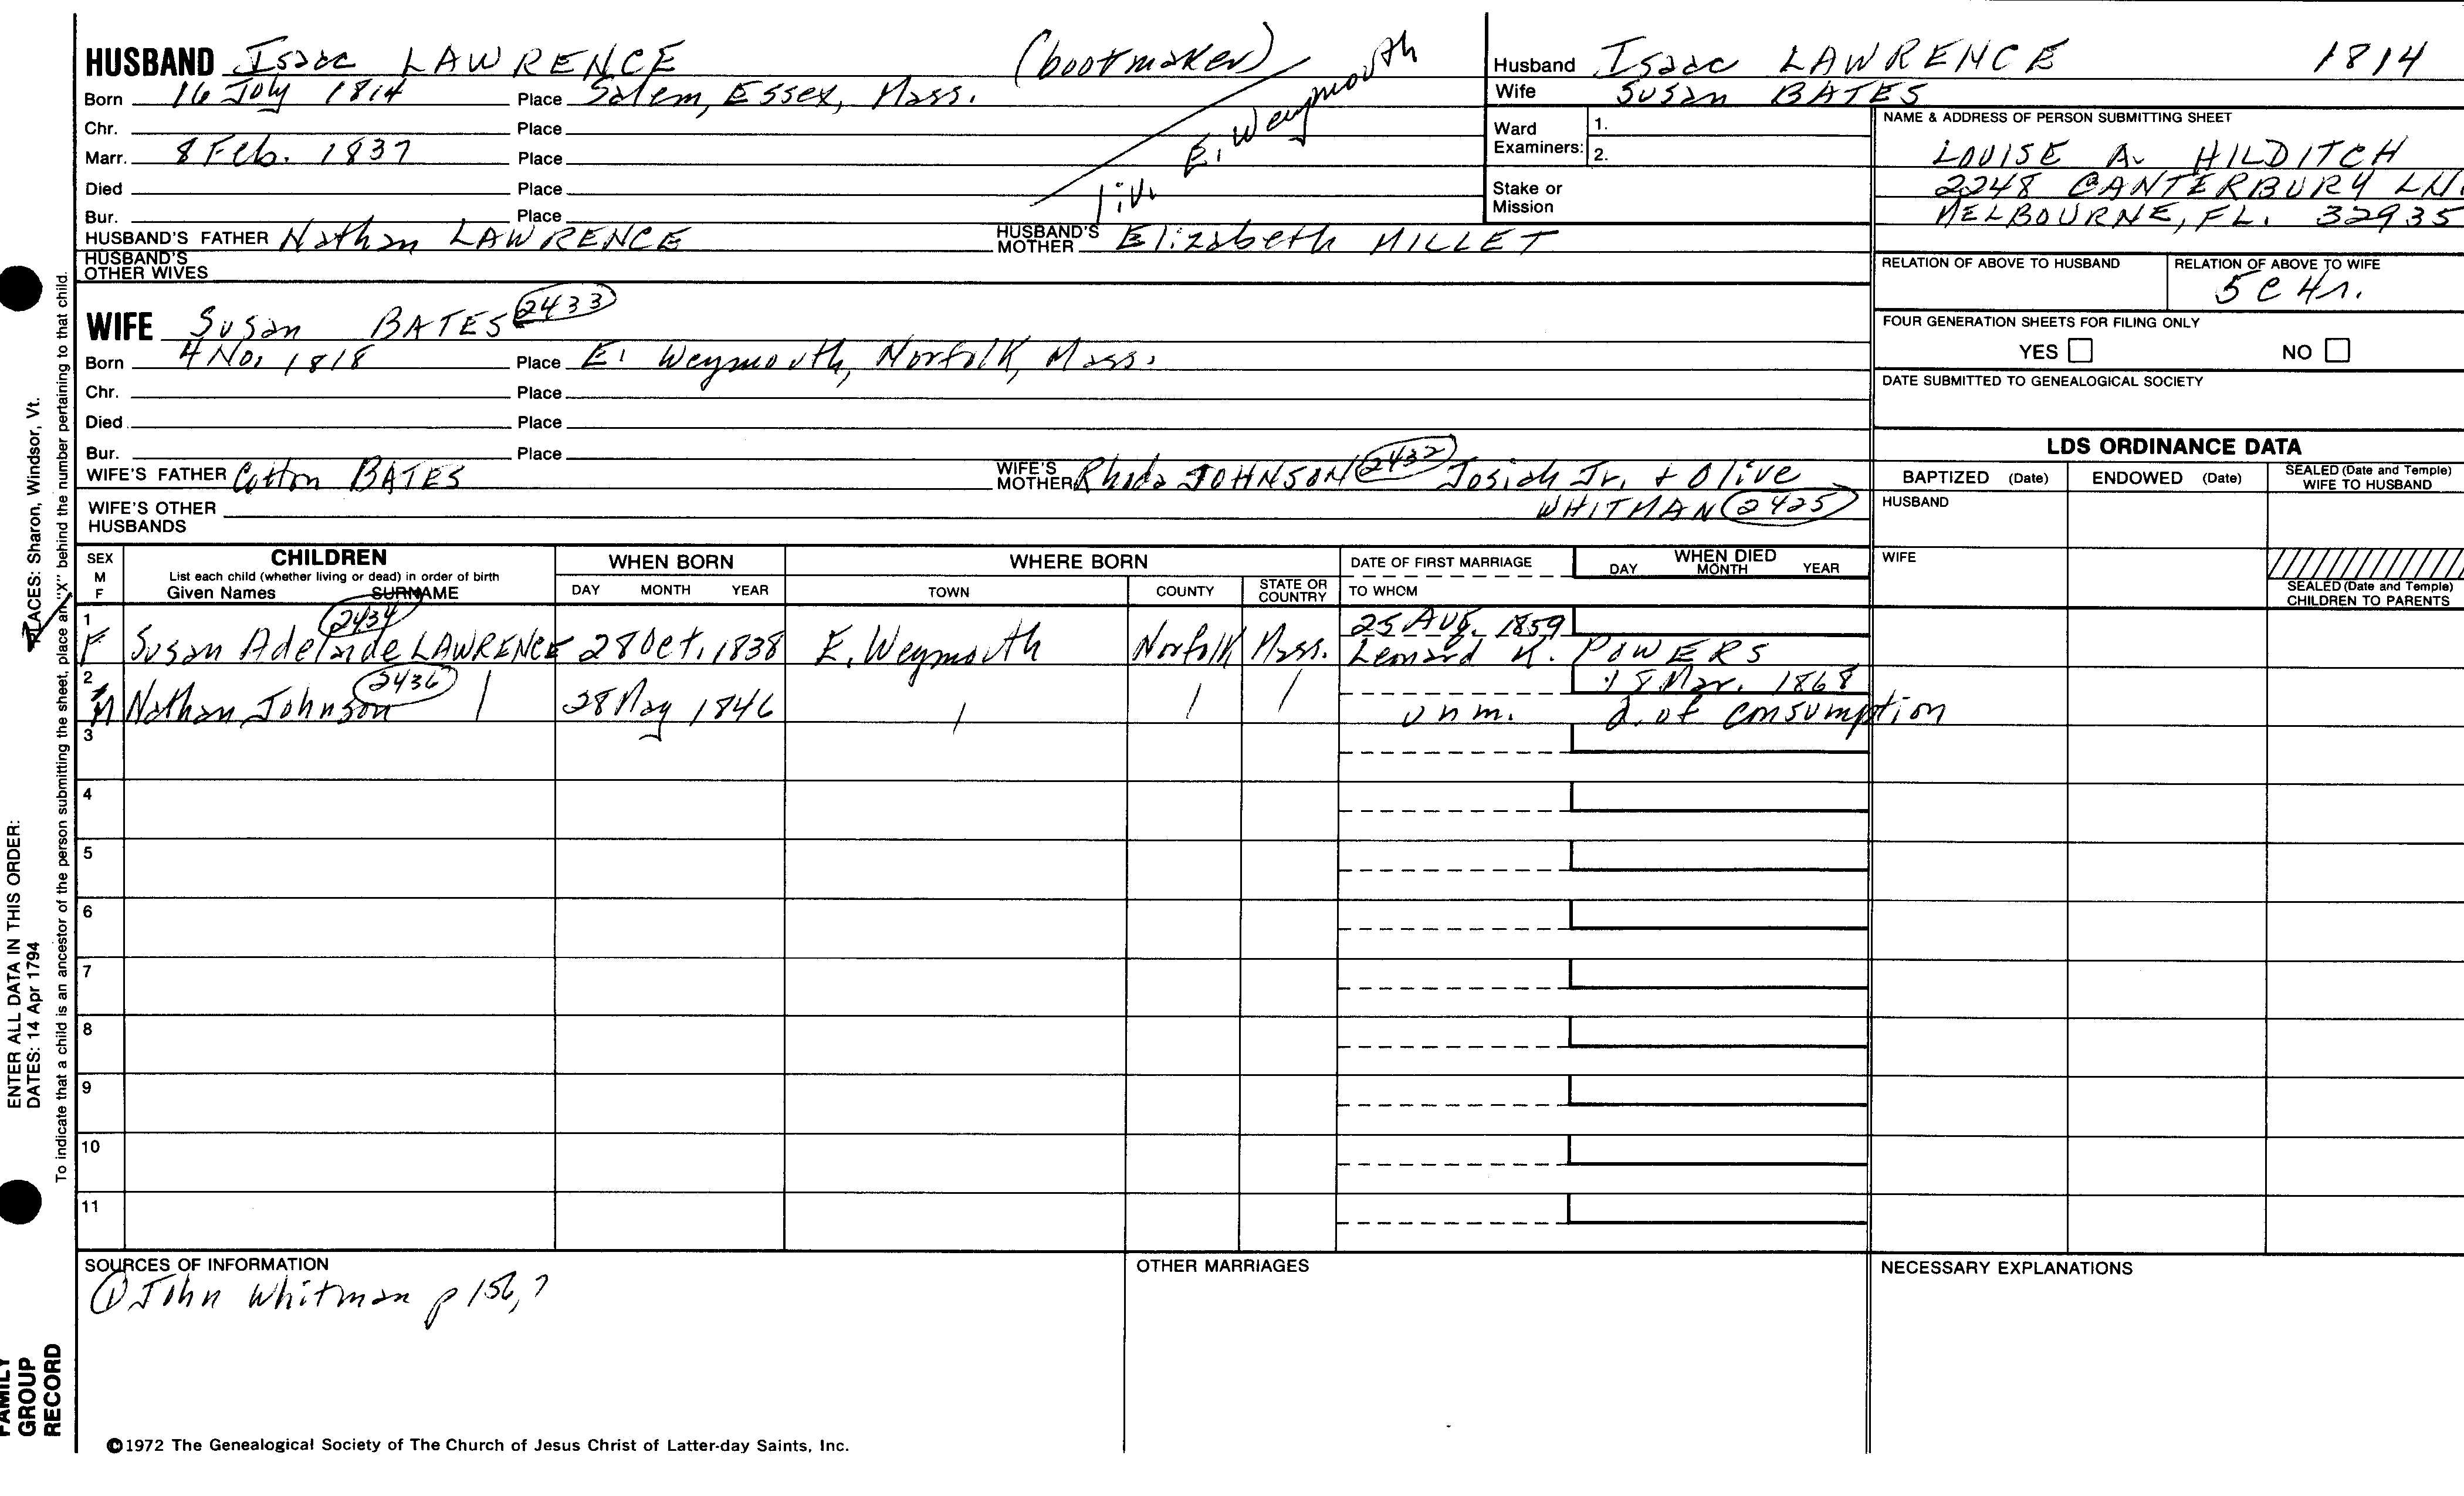 HUSBAND Isaac LAWRENCE (bootmaker)
Born 16 July 1814 Place Salem, Essex, Mass.
Chr. Place
Marr. 8 Feb. 1837 Place
Died Place
Bur. Place
liv. E. Weymouth
HUSBAND'S FATHER Nathan LAWRENCE HUSBAND'S MOTHER Elizabeth MILLET
HUSBAND'S OTHER WIVES
WIFE Susan BATES 2433
Born 4 No. 1818 Place E. Weymouth, Norfolk, Mass.
Chr. Place
Died Place
Bur. Place
WIFE'S FATHER Cotton BATES WIFE'S MOTHER Rhoda JOHNSON 2432 Josiah Jr. + Olive
WHITMAN 2425
WIFE'S OTHER HUSBANDS
Husband Isaac LAWRENCE 1814
Wife Susan BATES
Ward Examiners: 1.
2.
Stake or Mission
NAME & ADDRESS OF PERSON SUBMITTING SHEET
LOUISE A. HILDITCH
2248 CANTERBURY LN.
MELBOURNE, FL. 32935
RELATION OF ABOVE TO HUSBAND RELATION OF ABOVE TO WIFE
5C 4r.
FOUR GENERATION SHEETS FOR FILING ONLY
YES NO
DATE SUBMITTED TO GENEALOGICAL SOCIETY
LDS ORDINANCE DATA
BAPTIZED (Date) ENDOWED (Date) SEALED (Date and Temple) WIFE TO HUSBAND
HUSBAND
WIFE
SEALED (Date and Temple) CHILDREN TO PARENTS
SEX M F CHILDREN WHEN BORN WHERE BORN DATE OF FIRST MARRIAGE WHEN DIED
List each child (whether living or dead) in order of birth
Given Names SURNAME DAY MONTH YEAR TOWN COUNTY STATE OR COUNTRY TO WHOM DAY MONTH YEAR
2434 25 Aug. 1859
1 F Susan Adelaide LAWRENCE 28 Oct. 1838 E. Weymouth Norfolk Mass. Leonard K. POWERS
2436 18 Mar. 1868
2 M Nathan Johnson | 28 May 1846 | | | unm. d. of consumption
3
4
5
6
7
8
9
10
11
SOURCES OF INFORMATION OTHER MARRIAGES NECESSARY EXPLANATIONS
① John Whitman p 156, 7
©1972 The Genealogical Society of The Church of Jesus Christ of Latter-day Saints, Inc.
FAMILY GROUP RECORD
ENTER ALL DATA IN THIS ORDER:
DATES: 14 Apr 1794 PLACES: Sharon, Windsor, Vt.
To indicate that a child is an ancestor of the person submitting the sheet, place an "X" behind the number pertaining to that child.